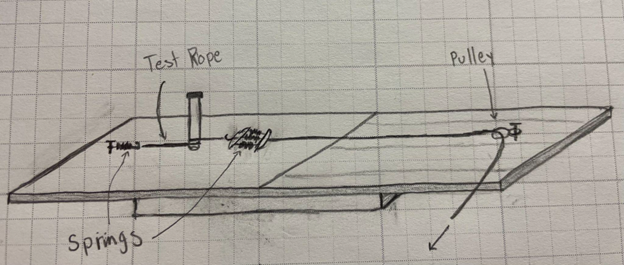 Test Rope
Pulley
Springs